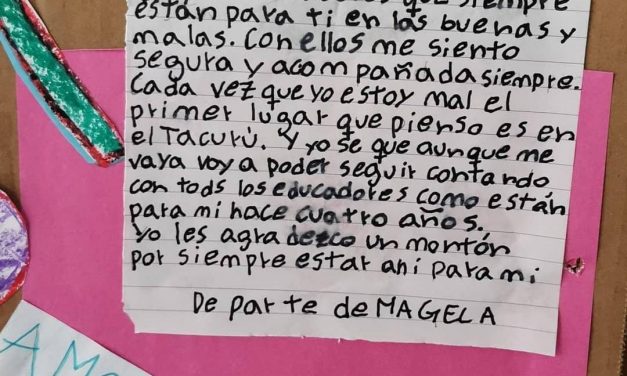 siempre
están para ti en las buenas y
malas. Con ellos me siento
segura y acompañada siempre.
Cada vez que yo estoy mal el
primer lugar que pienso es en
el Tacurú. Y yo se que aunque me
vaya voy a poder seguir contando
con tods los educadores como están
para mi hace cuatro años.
Yo les agradezco un montón
por siempre estar ahi para mi
De parte de MAGELA